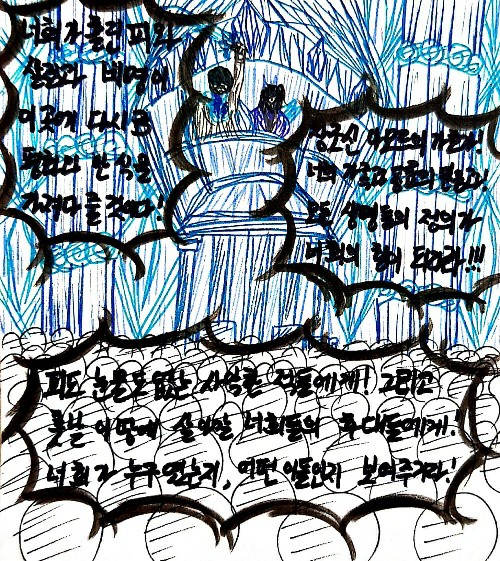 너희가 흘린 피와
살점과 비명이
이곳에 다시금
평화와 안식을
가져다 줄 것이다!
창조신 아몬드의 가호가!
너희 가족과 동료의 믿음이!
모든 생명들의 정의가
너희의 힘이 되리라!!!
피도 눈물도 없는 사악한 적들에게! 그리고
훗날 이땅에 살아갈 너희들의 후대들에게!
너희가 누구였는지, 어떤 이들인지 보여주거라!